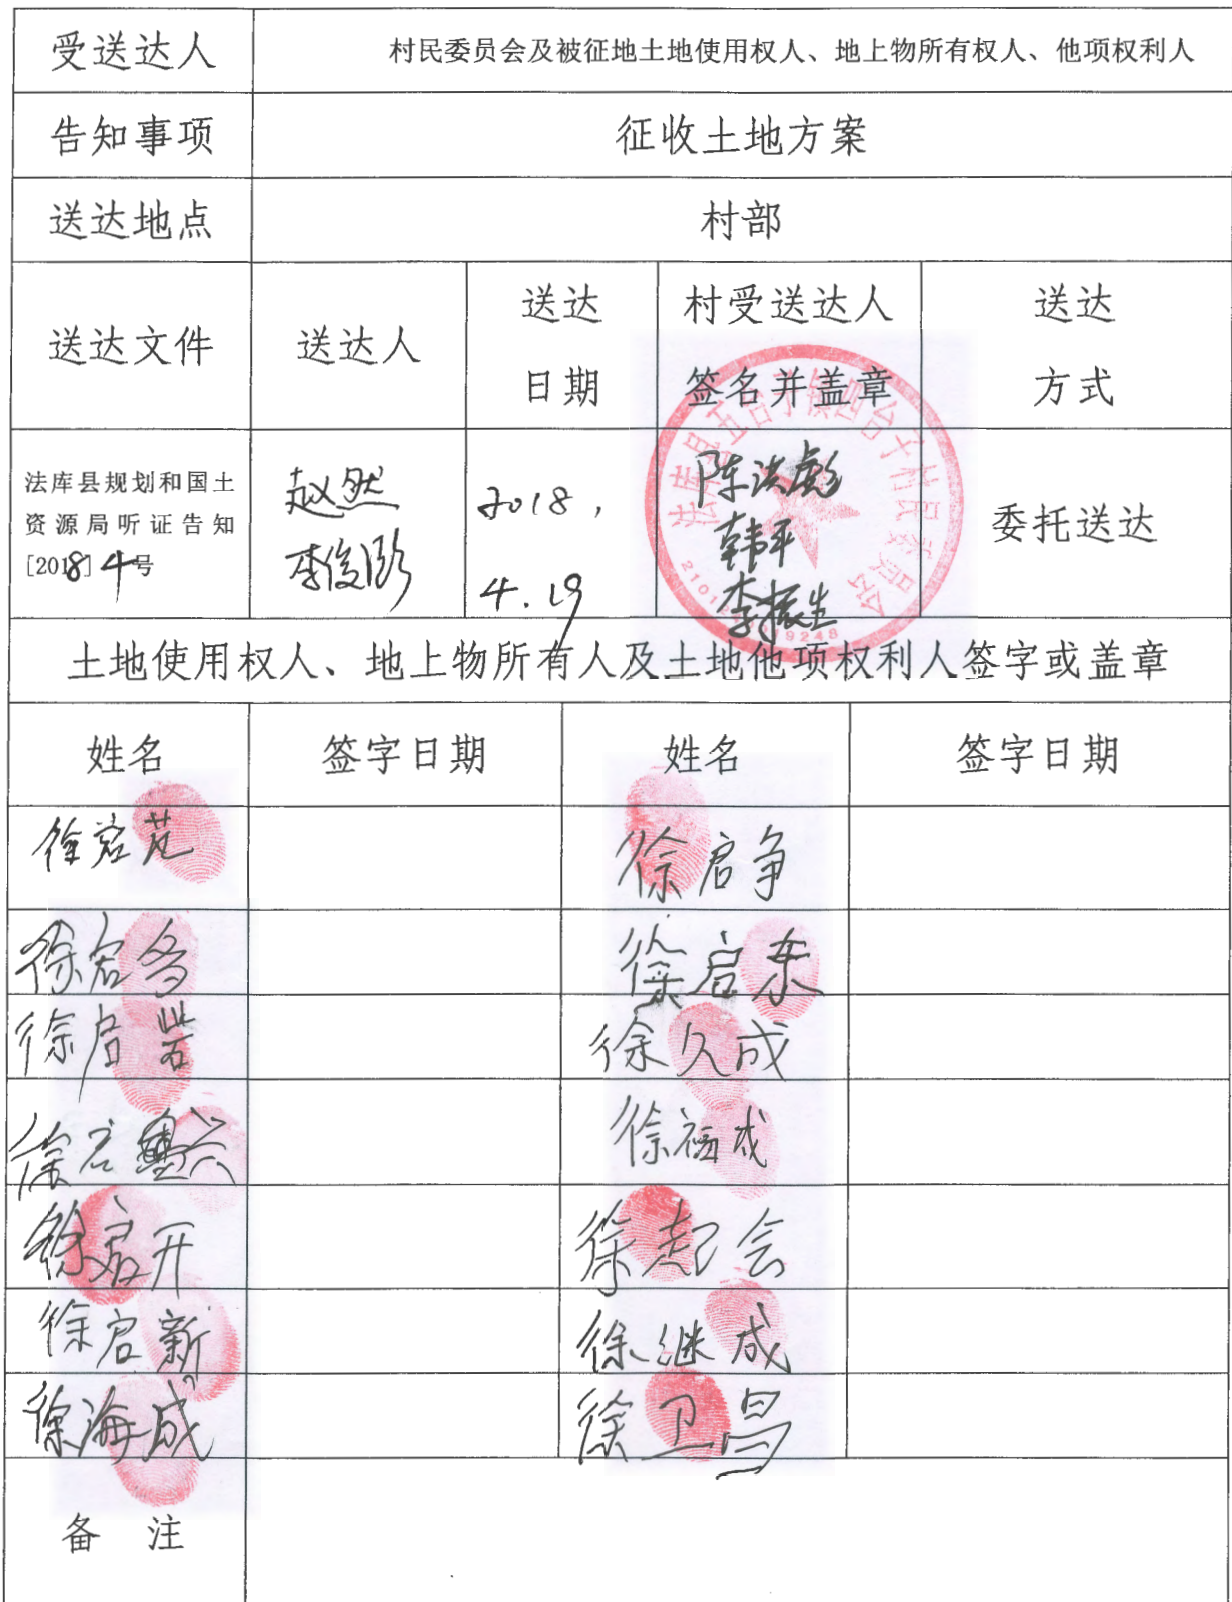 受送达人 村民委员会及被征地土地使用权人、地上物所有权人、他项权利人
告知事项 征收土地方案
送达地点 村部
送达文件 送达人 送达日期 村受送达人签名并盖章 送达方式
法库县规划和国土
资源局听证告知
[2018]4号
赵然
李俊
2018,
4.19
陈洪彪
韩平
李振生
委托送达
法库县五台子镇四台子村民委员会
2101240019248
土地使用权人、地上物所有人及土地他项权利人签字或盖章
姓名 签字日期 姓名 签字日期
徐启芝 徐启争
徐启 徐启东
徐启 徐久成
徐启兴 徐福成
徐启开 徐起会
徐启新 徐继成
徐海成 徐卫
备 注